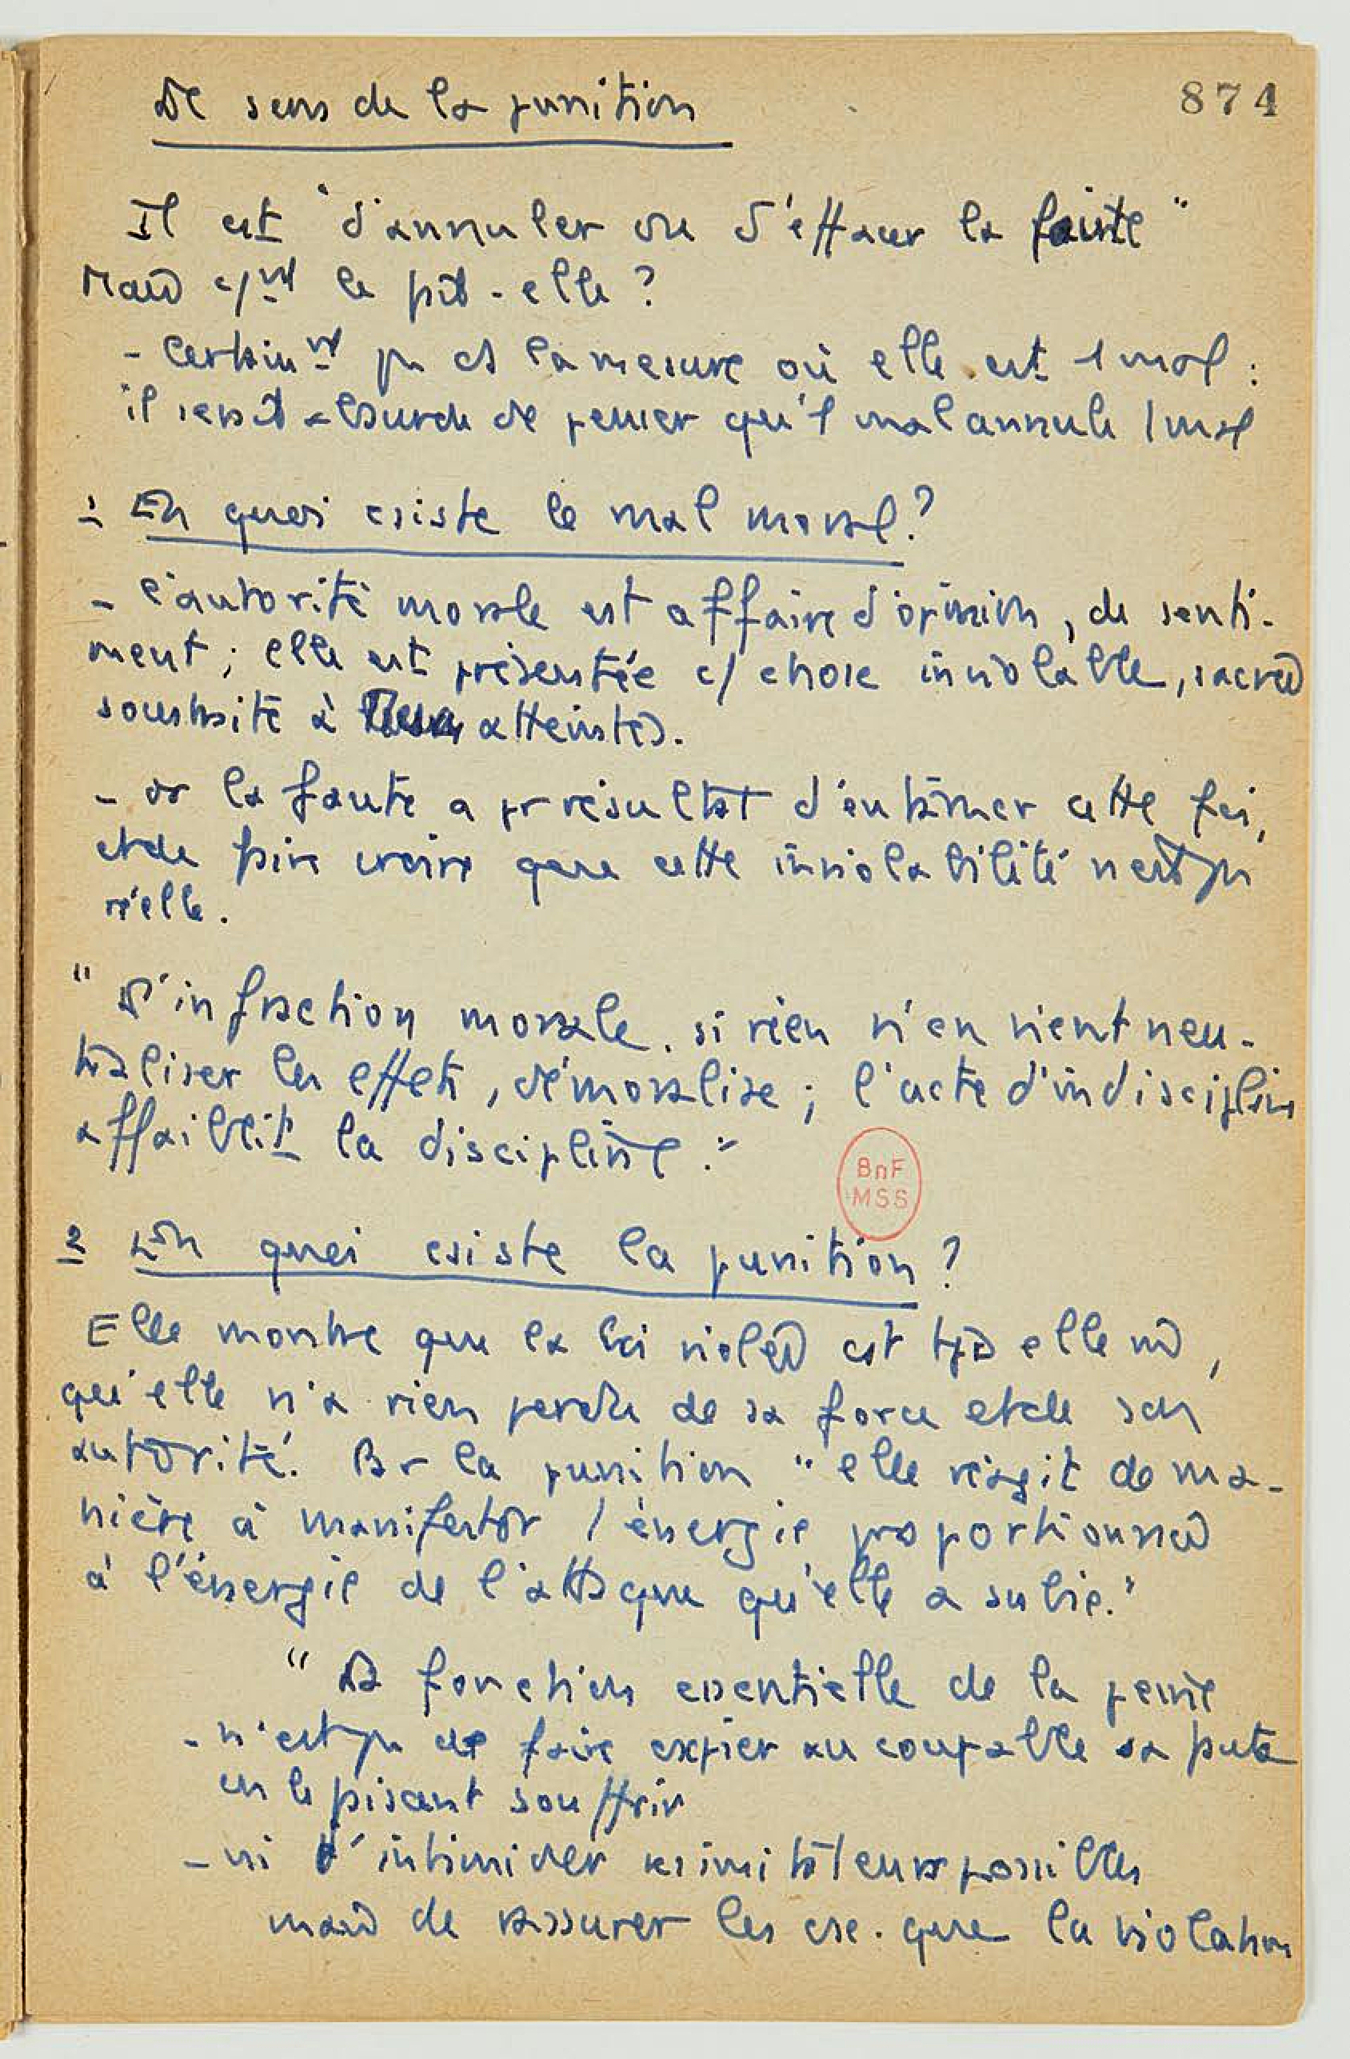 Le sens de la punition
874
Il est "d'annuler ou d'effacer la faute"
Mais c/nt le fait-elle ?
- Certainnt pas ds la mesure où elle est 1 mal :
il serait absurde de penser qu'1 mal annule 1 mal
1 En quoi csiste le mal moral ?
- l'autorité morale est affaire d'opinion, de senti-
ment ; elle est présentée c/ chose inviolable, sacrée
soustraite à atteintes.
- or la faute a pr résultat d'entamer cette foi,
et de faire croire que cette inviolabilité n'est pas
réelle.
"L'infraction morale, si rien n'en vient neu-
traliser les effets, démoralise ; l'acte d'indiscipline
affaiblit la discipline."
2 En quoi csiste la punition ?
Elle montre que la loi violée est tjs elle m̂,
qu'elle n'a rien perdu de sa force et de son
autorité. Par la punition "elle réagit de ma-
nière à manifester 1 énergie proportionnée
à l'énergie de l'attaque qu'elle a subie."
"La fonction essentielle de la peine
- n'est pas de faire expier au coupable sa faute
en le faisant souffrir
- ni d'intimider les imitateurs possibles
mais de rassurer les csc. que la violation
BnF
MSS